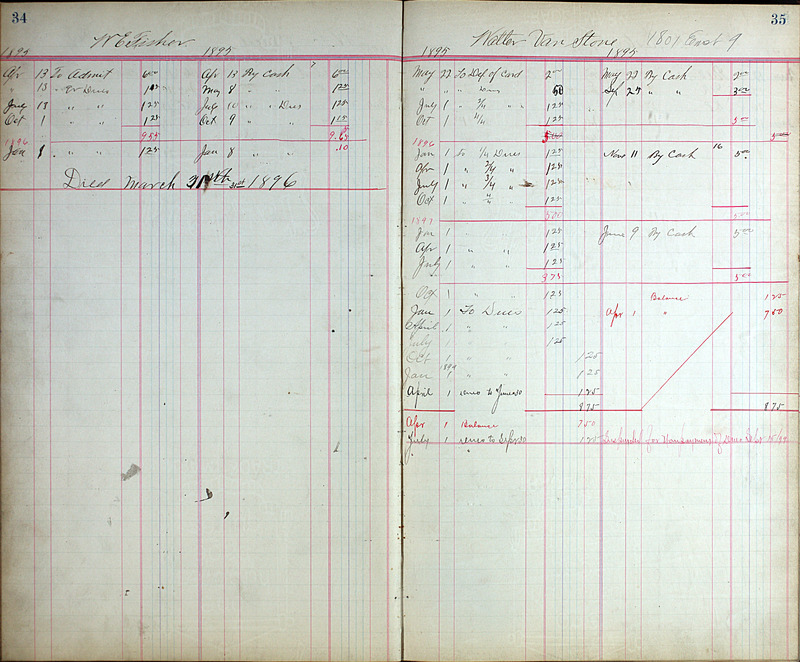 34
W E Fisher
1895 1895
Apr 13 To Admit 6 00 Apr 13 By Cash 6 00
" 13 " Qr Dues 1 25 May 8 " " 1 25
July 13 " " 1 25 July 10 " " Dues 1 25
Oct 1 " " 1 25 Oct 9 " " 1 15
9 55 9.65
1896
Jan 8 " " 1 25 Jan 8 " " .10
Died March 31st 1896
35
Walter Van Stone 1801 East 9
1895 1895
May 22 To Dep of Card 2 00 May 22 By Cash 2 00
" " " " Dues 50 Sep 25 " " 3 00
July 1 " 3/4 " " 1 25
Oct 1 " 4/4 1 25 5 00
5 00 5 00
1896
Jan 1 To 1/4 Dues 1 25 Nov 11 By Cash 16 5 00
Apr 1 " 2/4 " 1 25
July 1 " 3/4 " 1 25
Oct 1 " 4/4 " 1 25
5 00 5 00
1897
Jan 1 " 1 25 June 9 By Cash 5 00
Apr 1 " " 1 25
July 1 " " 1 25
3 75 5 00
Oct 1 " " 1 25 Balance 1 25
Jan 1 To Dues 1 25 Apr 1 " 7 50
April 1 " " 1 25
July 1 25
Oct 1 " " 1 25
1899
Jan 1 " " 1 25
April 1 dues to June 30 1 25
8 75 8 75
Apr 1 Balance 7 50
July 1 dues to Sep 30 1 25 Suspended for Nonpayment of Dues Sept 15/99